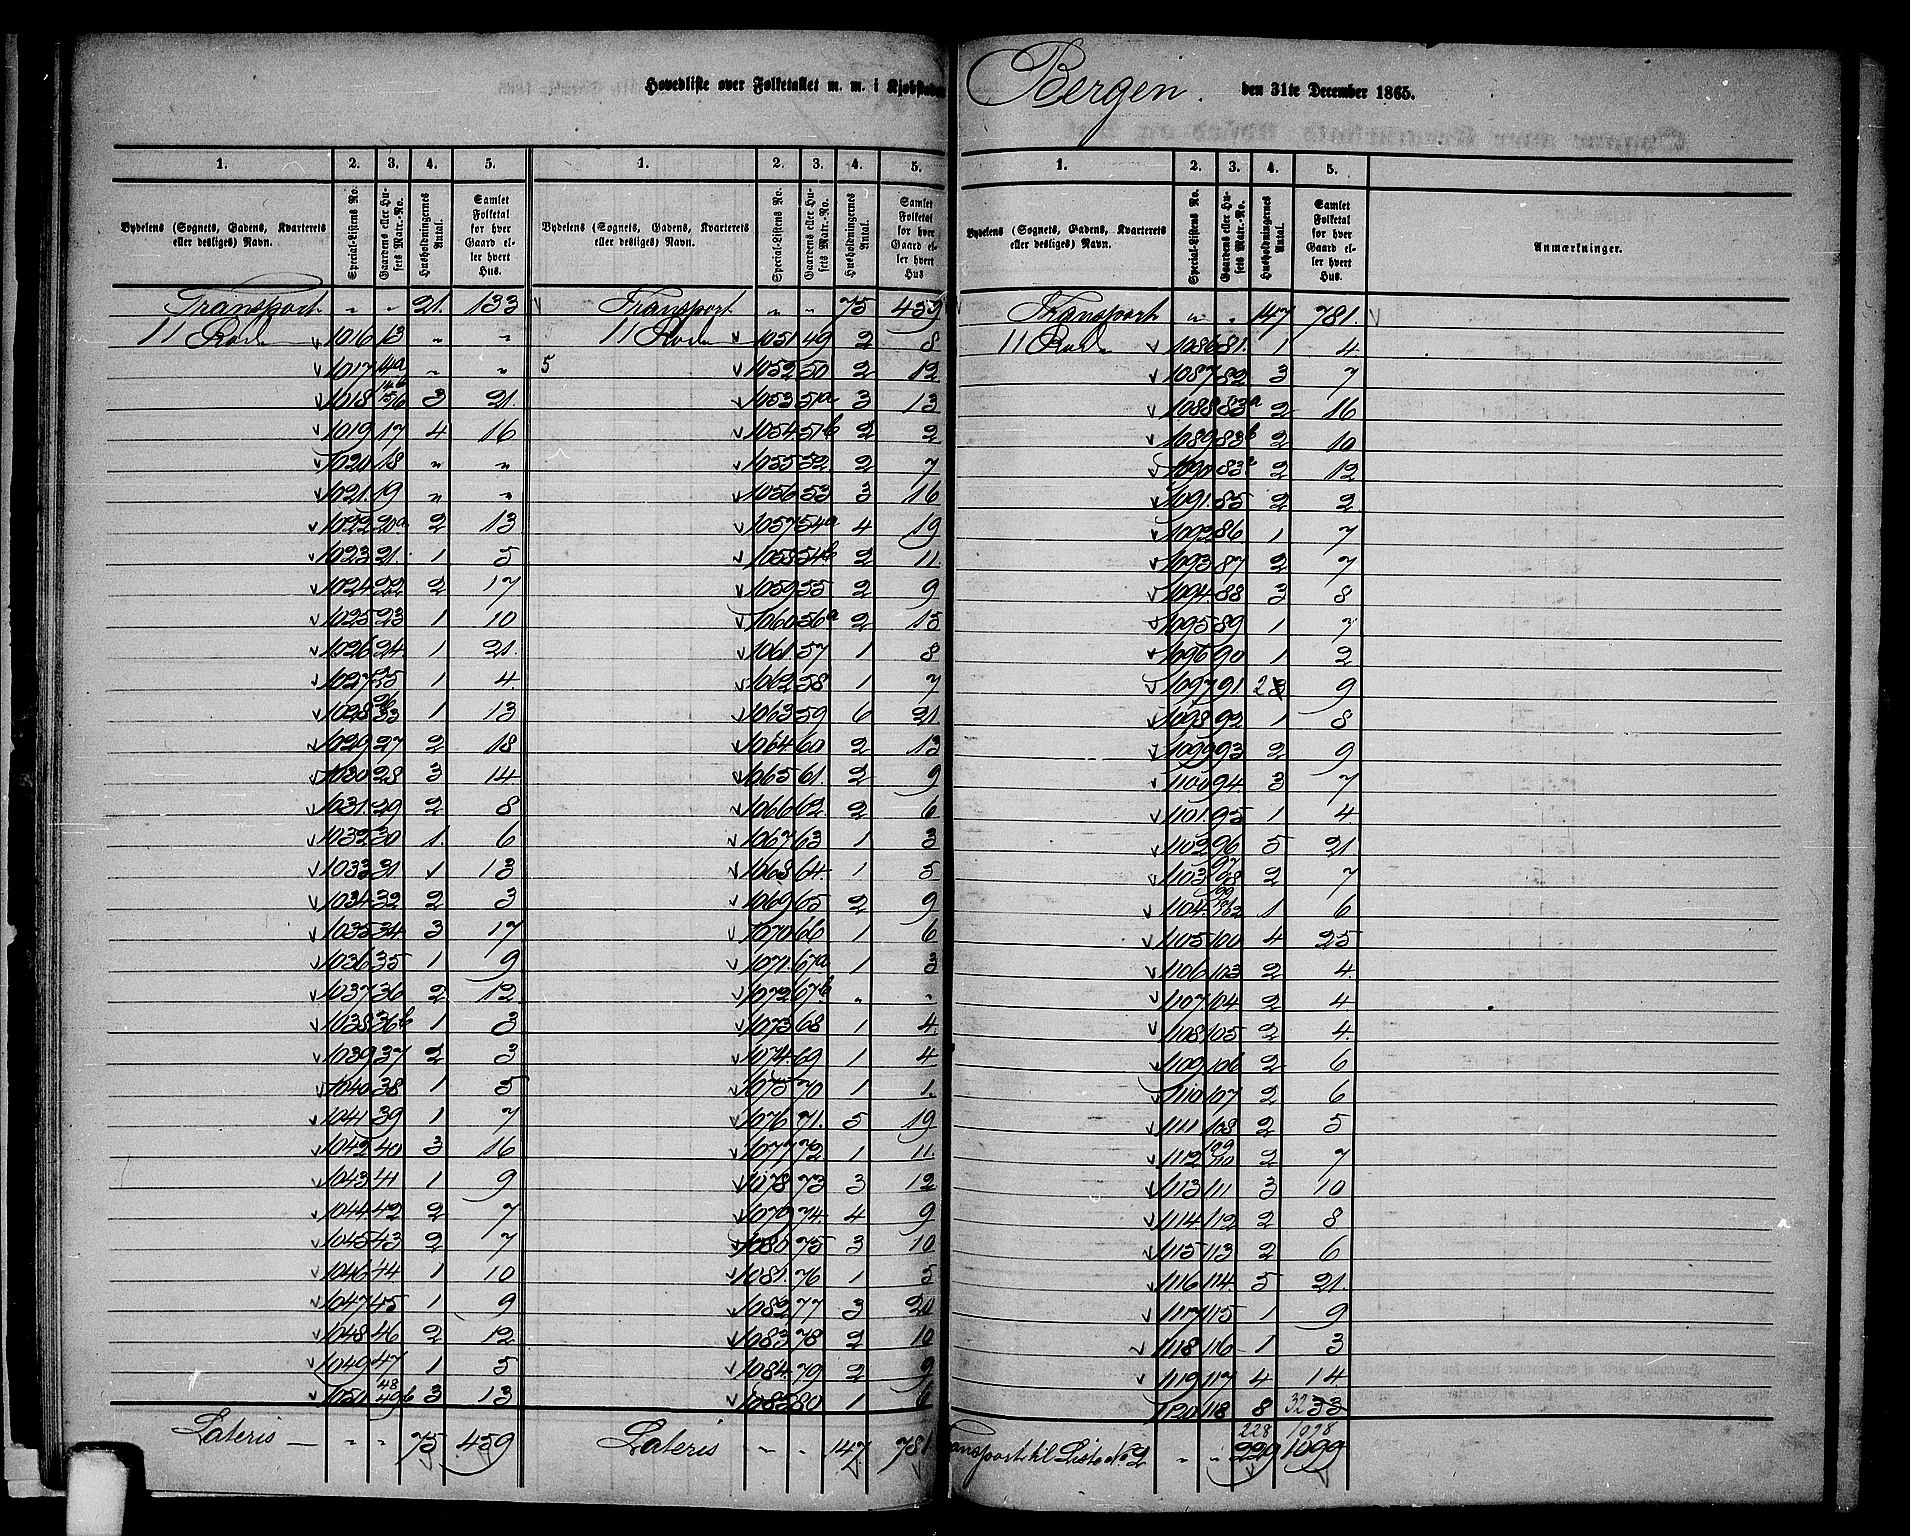 Hovedliste over Folketallet m. m. i Kjøbstaden Bergen. den 31te December 1865.
1. 2. 3. 4. 5. 1. 2. 3. 4. 5.
Bydelens (Sognets, Gadens, Kvarterets eller desliges) Navn. Special-Listens No. Gaardens eller Husets Matr.-No. Husholdningernes Antal. Samlet Folketal for hver Gaard eller hvert Hus. Bydelens (Sognets, Gadens, Kvarterets eller desliges) Navn. Special-Listens No. Gaardens eller Husets Matr.-No. Husholdningernes Antal. Samlet Folketal for hver Gaard eller hvert Hus
Transport " " 21. 133 Transport " " 75 459
11 Rode 1016 13 " " 11 Rode 1051 49 2 8
1017 14a " " 5 1052 50 2 12
1018 14b 15/16 3 21 1053 51a 3 13
1019 17 4 16 1054 51b 2 2
1020 18 " " 1055 52 2 7
1021. 19 " " 1056 53 3 16
1022 20a 2 13 1057 54a 4 19
1023 21. 1 5 1058 54b 2 11.
1024 22 2 17 1059 55 2 9
1025 23 1 10 1060 56a 2 15
1026 24 1 21. 1061 57 1 8
1027 25 1 4. 1062 58 1 7
1028 26 33 1 13 1063 59 6 21
1029 27 2 18 1064 60 2 13
1030 28 3 14 1065 61. 2 9
1031. 29 2 8 1066 62. 2 6
1032 30 1. 6 1067 63 1 3
1033 31 1 13 1068 64 1 5
1034 32 2 3 1069 65 2 9
1035 34 3 17 1070 66 1 6
1036 35 1 9 1071. 67a 1 3
1037 36 2 12 1072 67b " "
1038 36b 1 3 1073 68 1 4.
1039 37 2 3 1074. 69 1 4
1040 38 1 5 1075 70 1 1.
1041 39 1 7 1076 71. 5 19
1042 40 3 16 1077 72 1 11.
1043 41 1 9 1078 73 3 12
1044 42 2 7 1079 74. 4 9
1045 43 2 7 1080 75 3 10
1046 44 1 10 1081. 76 1 5
1047 45 1 9 1082 77 3 20
1048 46 2 12 1083 78 2 10
1049 47 1 5 1084. 79 2 9
1050 48 49b 3 13 1085 80 1 6
Lateris " " 75 459 Lateris " " 147. 781
1. 2. 3. 4. 5.
Bydelens (Sognets, Gadens, Kvarterets eller desliges) Navn. Special-Listens No. Gaardens eller Husets Matr.-No. Husholdningernes Antal. Samlet Folketal for hver Gaard eller hvert Hus. Anmærkninger.
Transport " " 147 781.
11 Rode 1086 81. 1 4
1087 82 3 7
1088 83a 2 16
1089 83b 2 10
1090 83c 2 12
1091. 85 2 2
1092 86. 1 7
1093 87 2 7
1094. 88 3 8
1095 89 1 7
1096 90 1 2
1097 91 2 3 9
1098 92 1 8
1099 93 2 9
1100 94 3 7
1101. 95 1 4
1102 96 5 21
1103 97 98 2 7
1104. 99 1 6
1105 100 4 25
1106 103 2 4.
1107 104 2 4
1108 105 2 4.
1109 106 2 6
1110 107 2 6
1111 108 2 5
1112 109 110 2 7
1113 111 3 10
1114 112 2 8
1115 113 2 6
1116 114. 5 21.
1117 115 1 9
1118 116 1 3
1119 117 4 14
1120 118 8 32 33
228 1098
Transport til Liste No 2 " " 229 1099